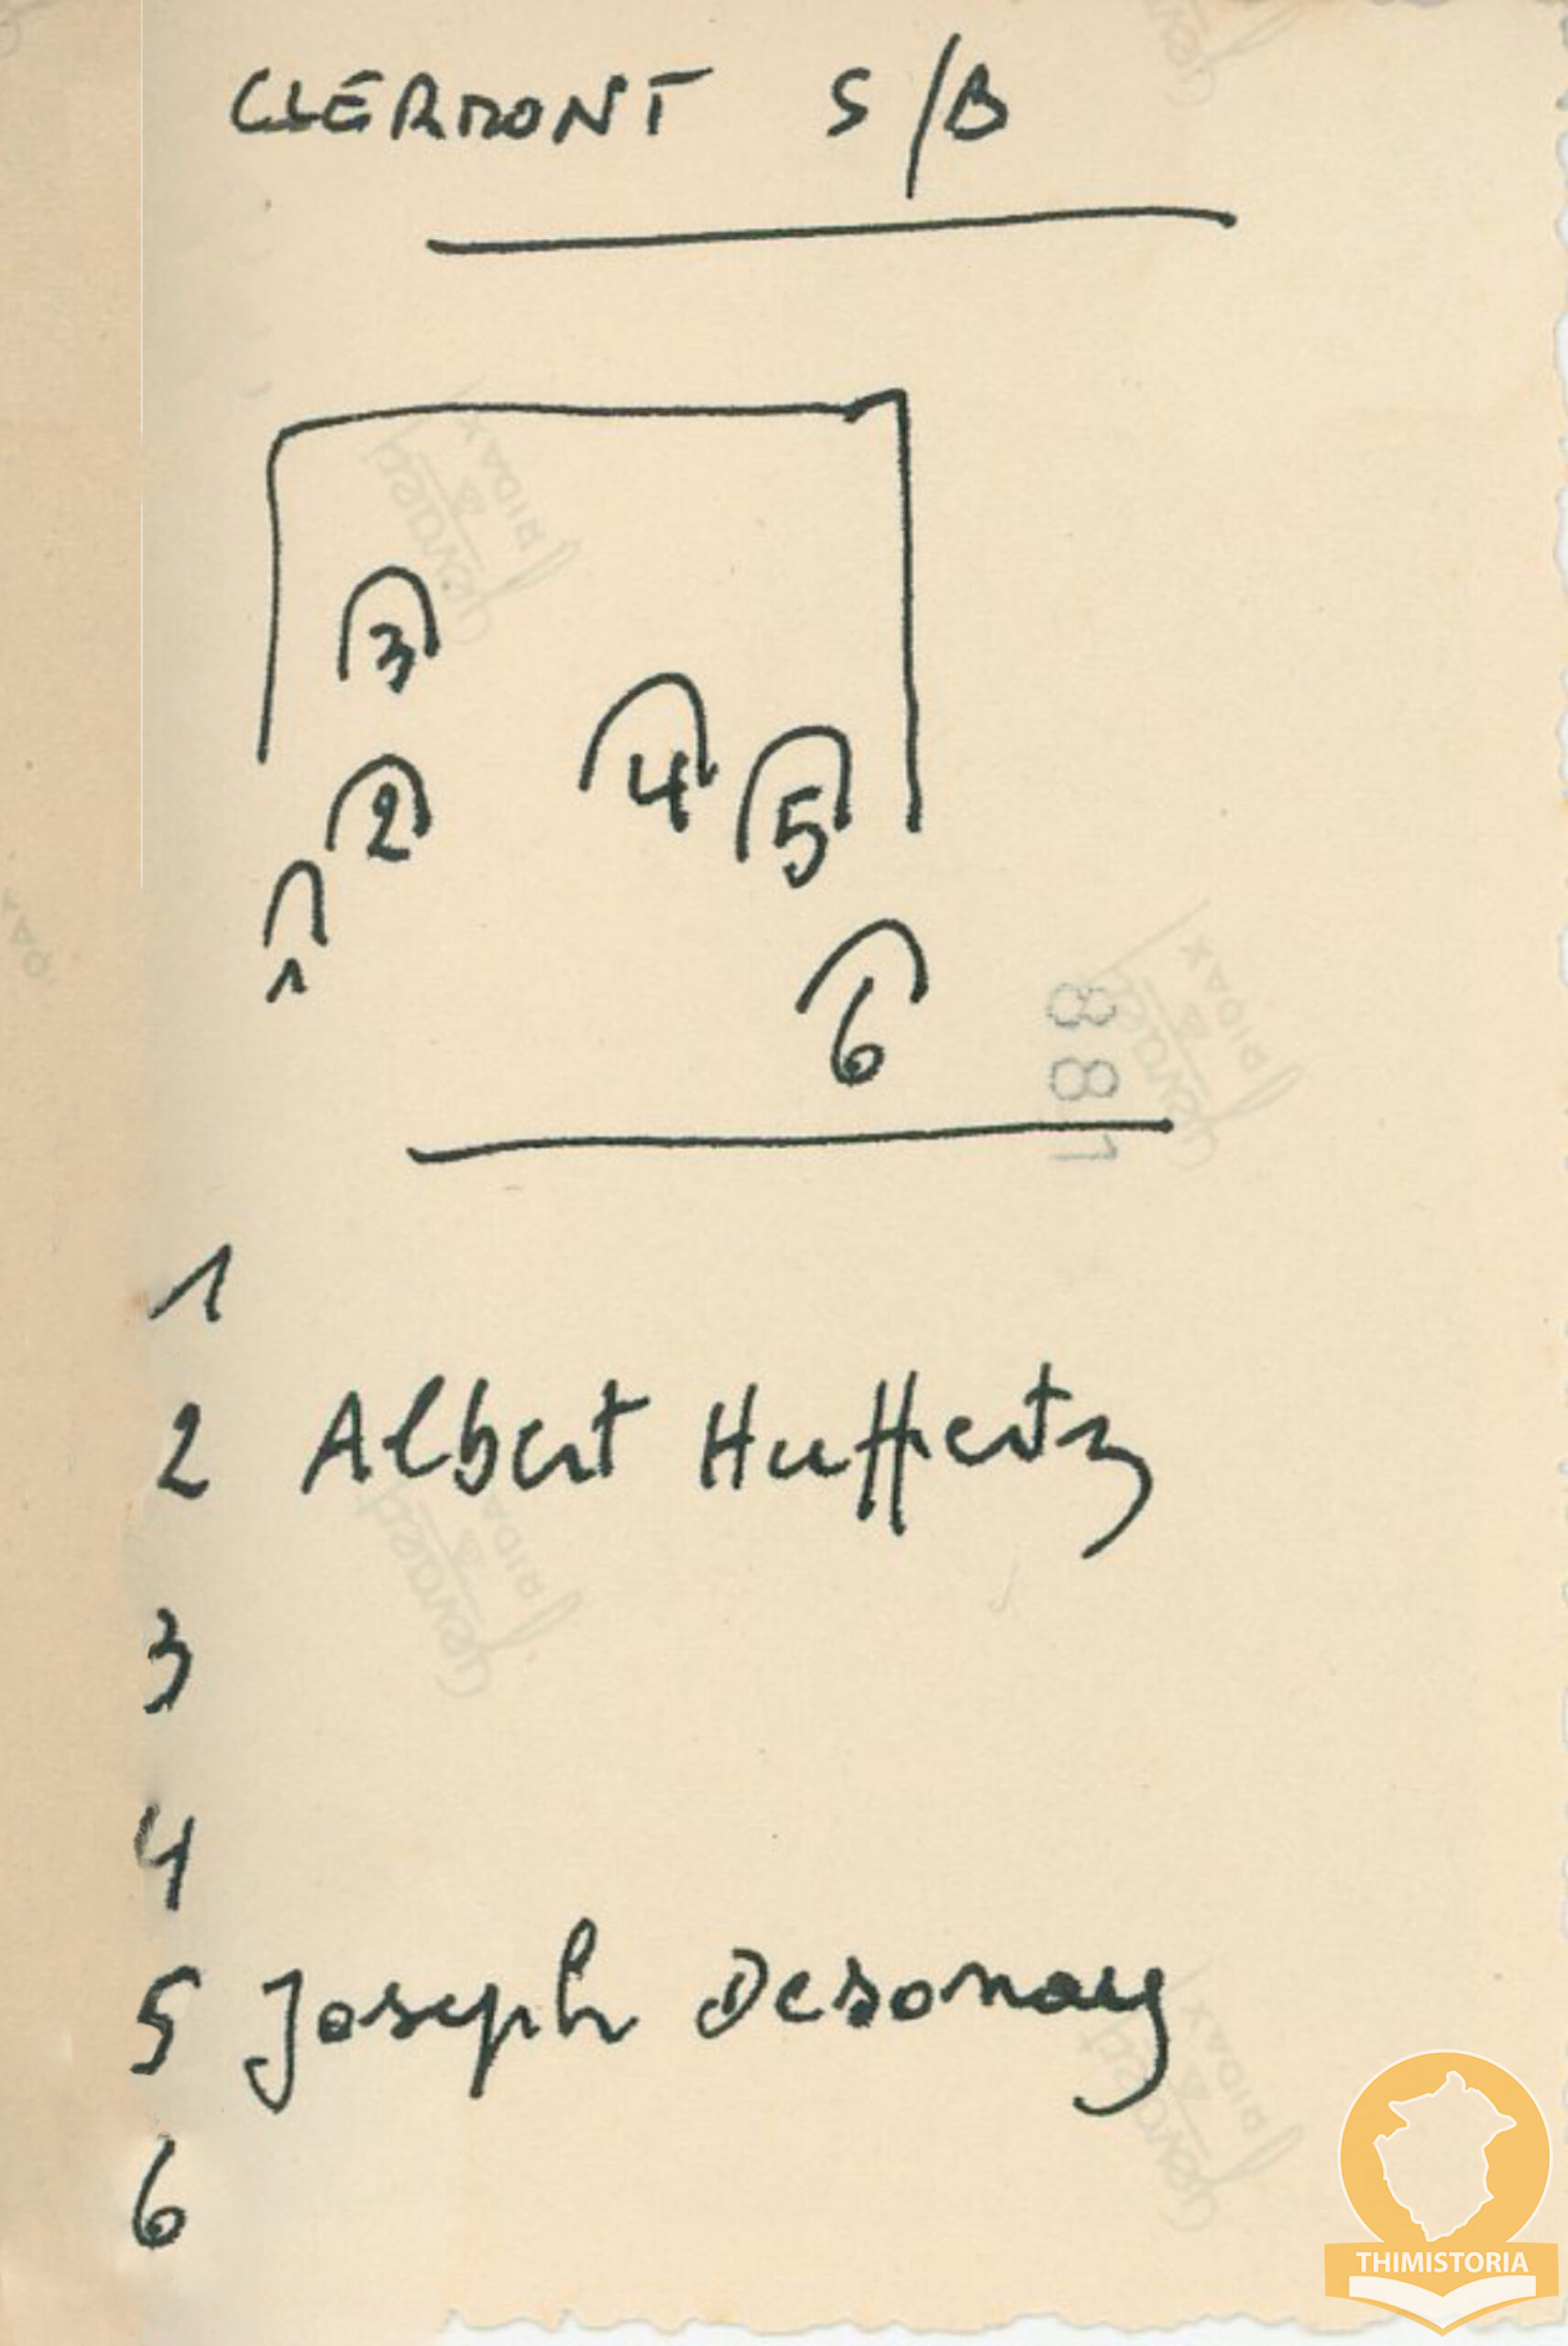 CLERMONT S/B
3
4
2
5
1
6
881
1
2 Albert Huffertz
3
4
5 Joseph Desonay
6
Gevaert
RIDAX
THIMISTORIA